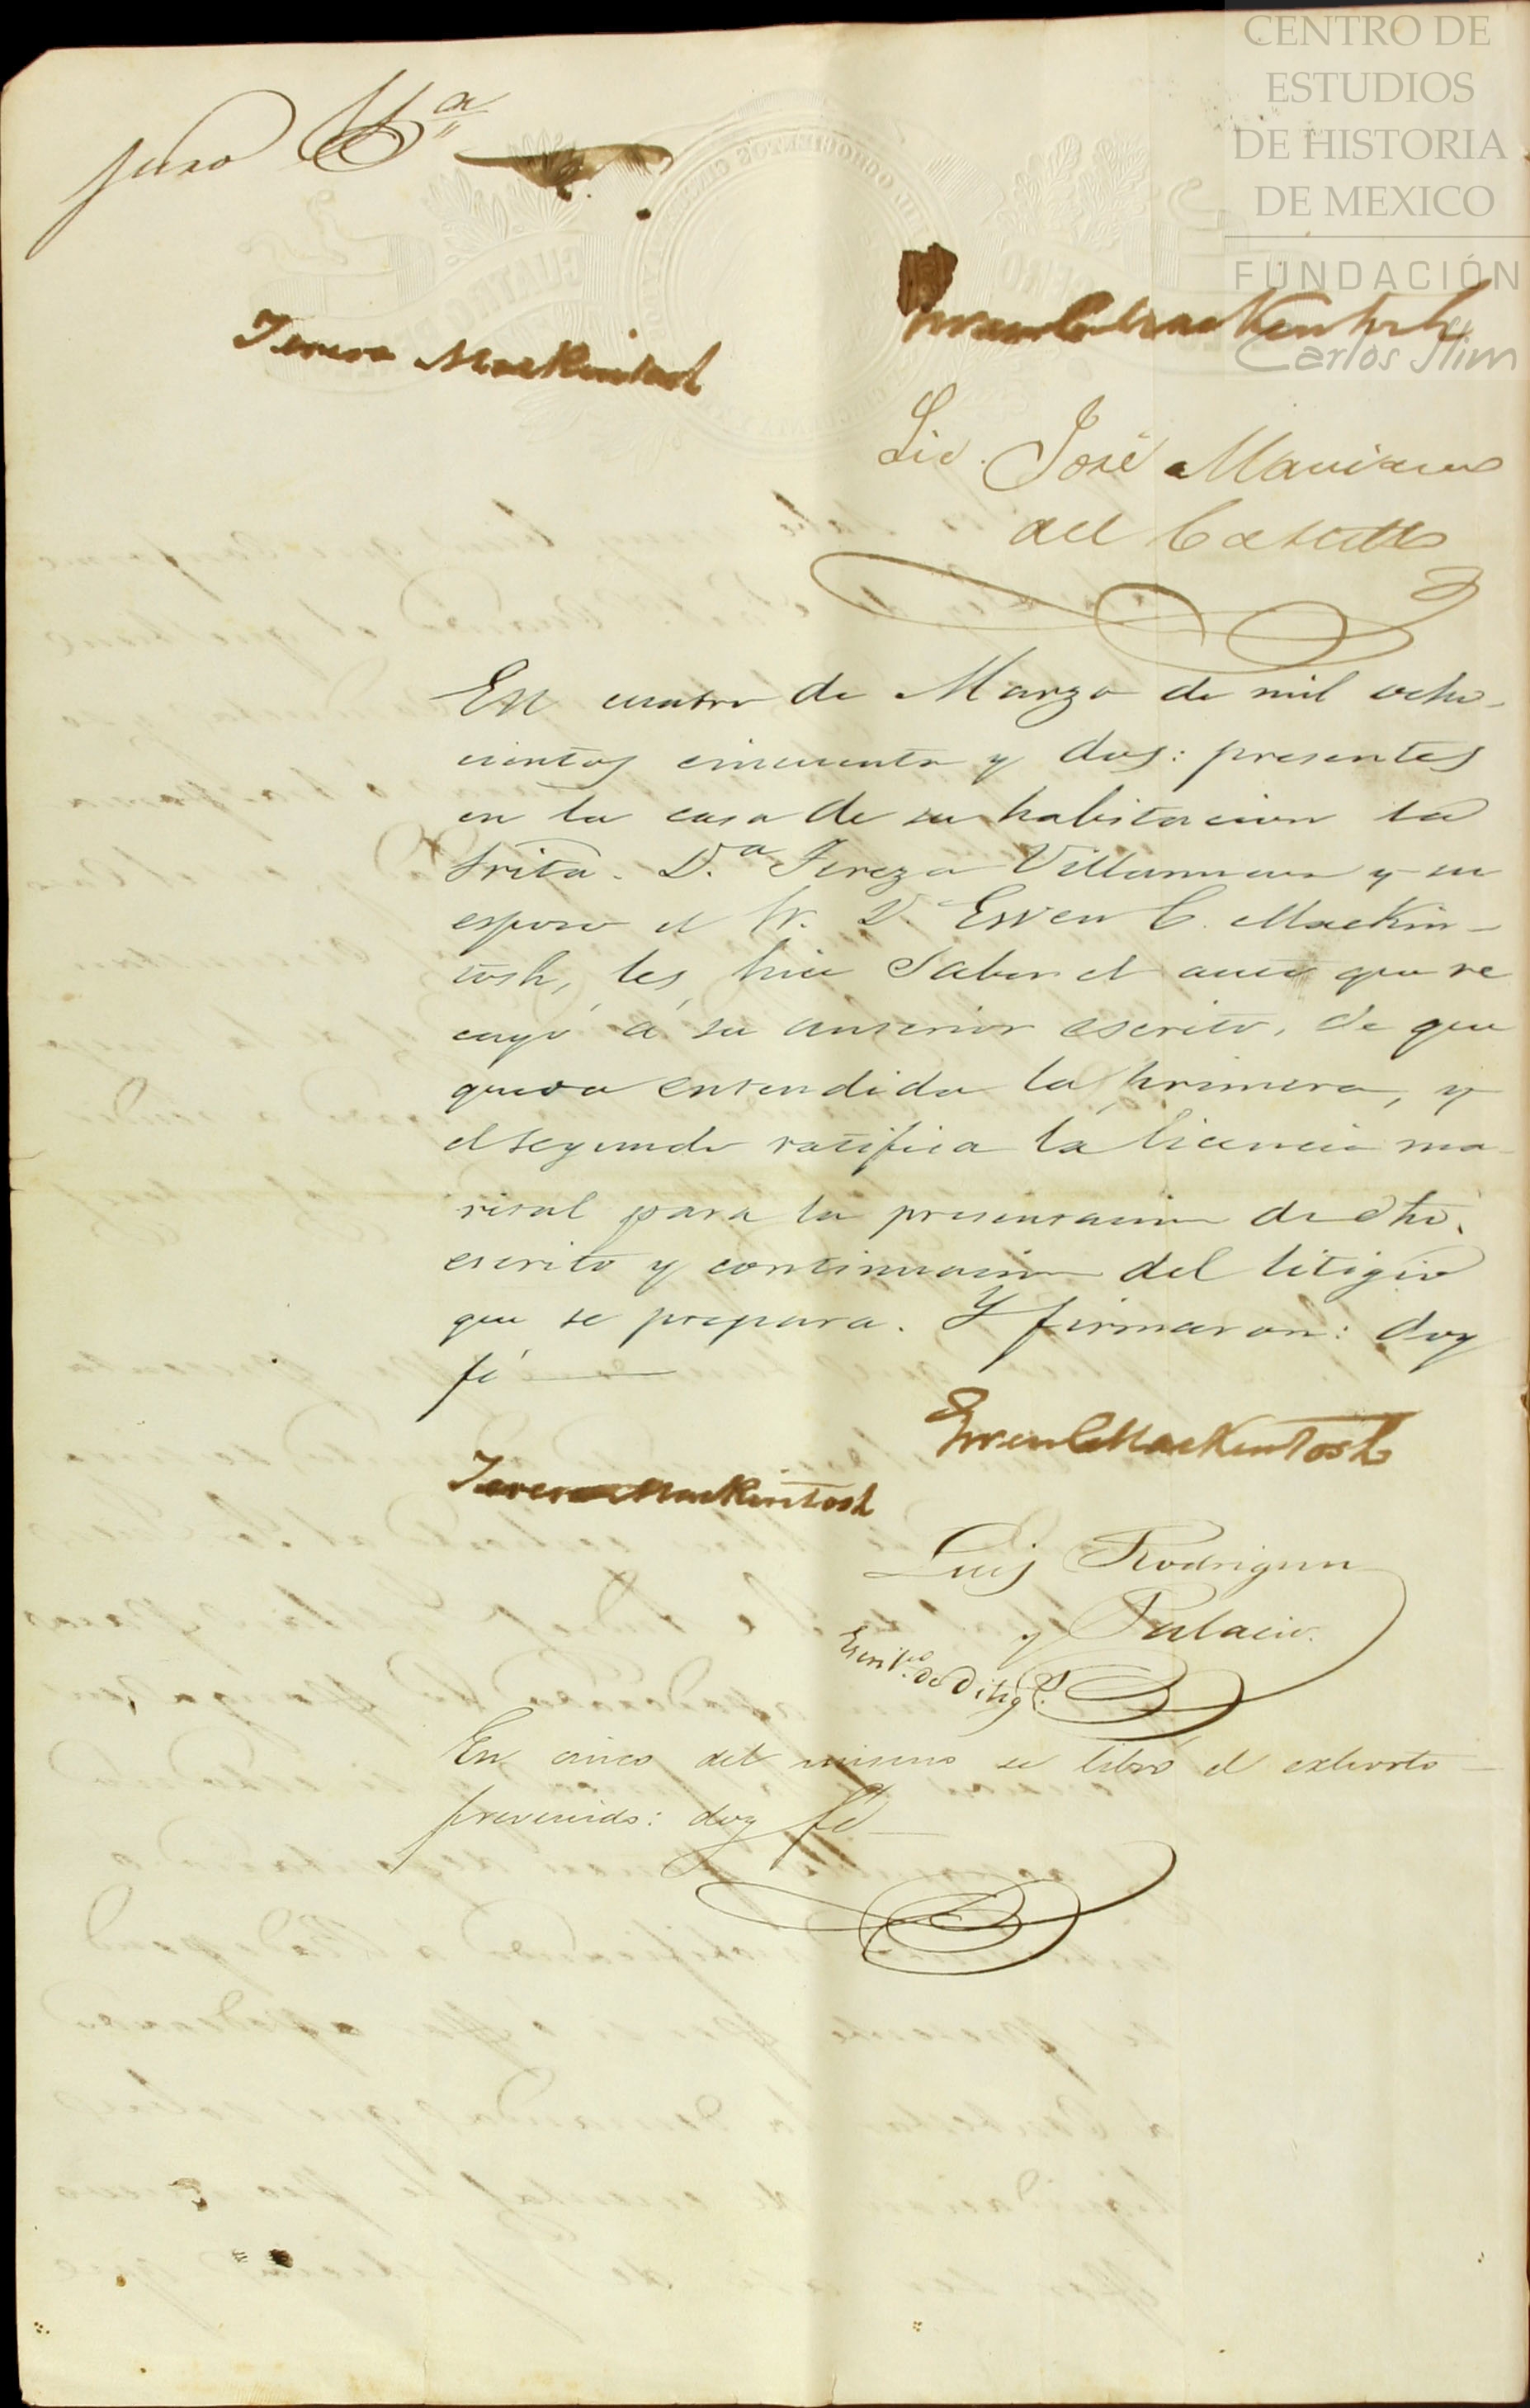 CENTRO DE
ESTUDIOS
DE HISTORIA
DE MEXICO
FUNDACIÓN
Carlos Slim
juro &ª
Teresa Mackintosh
Ewen C Mackintosh
Lic. José Mariano
del Castillo
En cuatro de Marzo de mil ocho-
cientos cincuenta y dos: presentes
en la casa de su habitacion la
Srita. D.ª Tereza Villanueva y su
esposo el Sr. D. Ewen C. Mackin-
tosh, les hice saber el auto que re
cayó á su anterior escrito, de que
queda entendida la primera, y
el segundo ratifica la licencia ma-
rital para la presentacion de dho.
escrito y continuacion del litigio
que se prepara. Y firmaron: doy
fé
Ewen C Mackintosh
Teresa Mackintosh
Luis Rodriguez
y Palacio.
Escrib.no de Dilig.s
En cinco del mismo se libró el exhorto
prevenido: doy fé